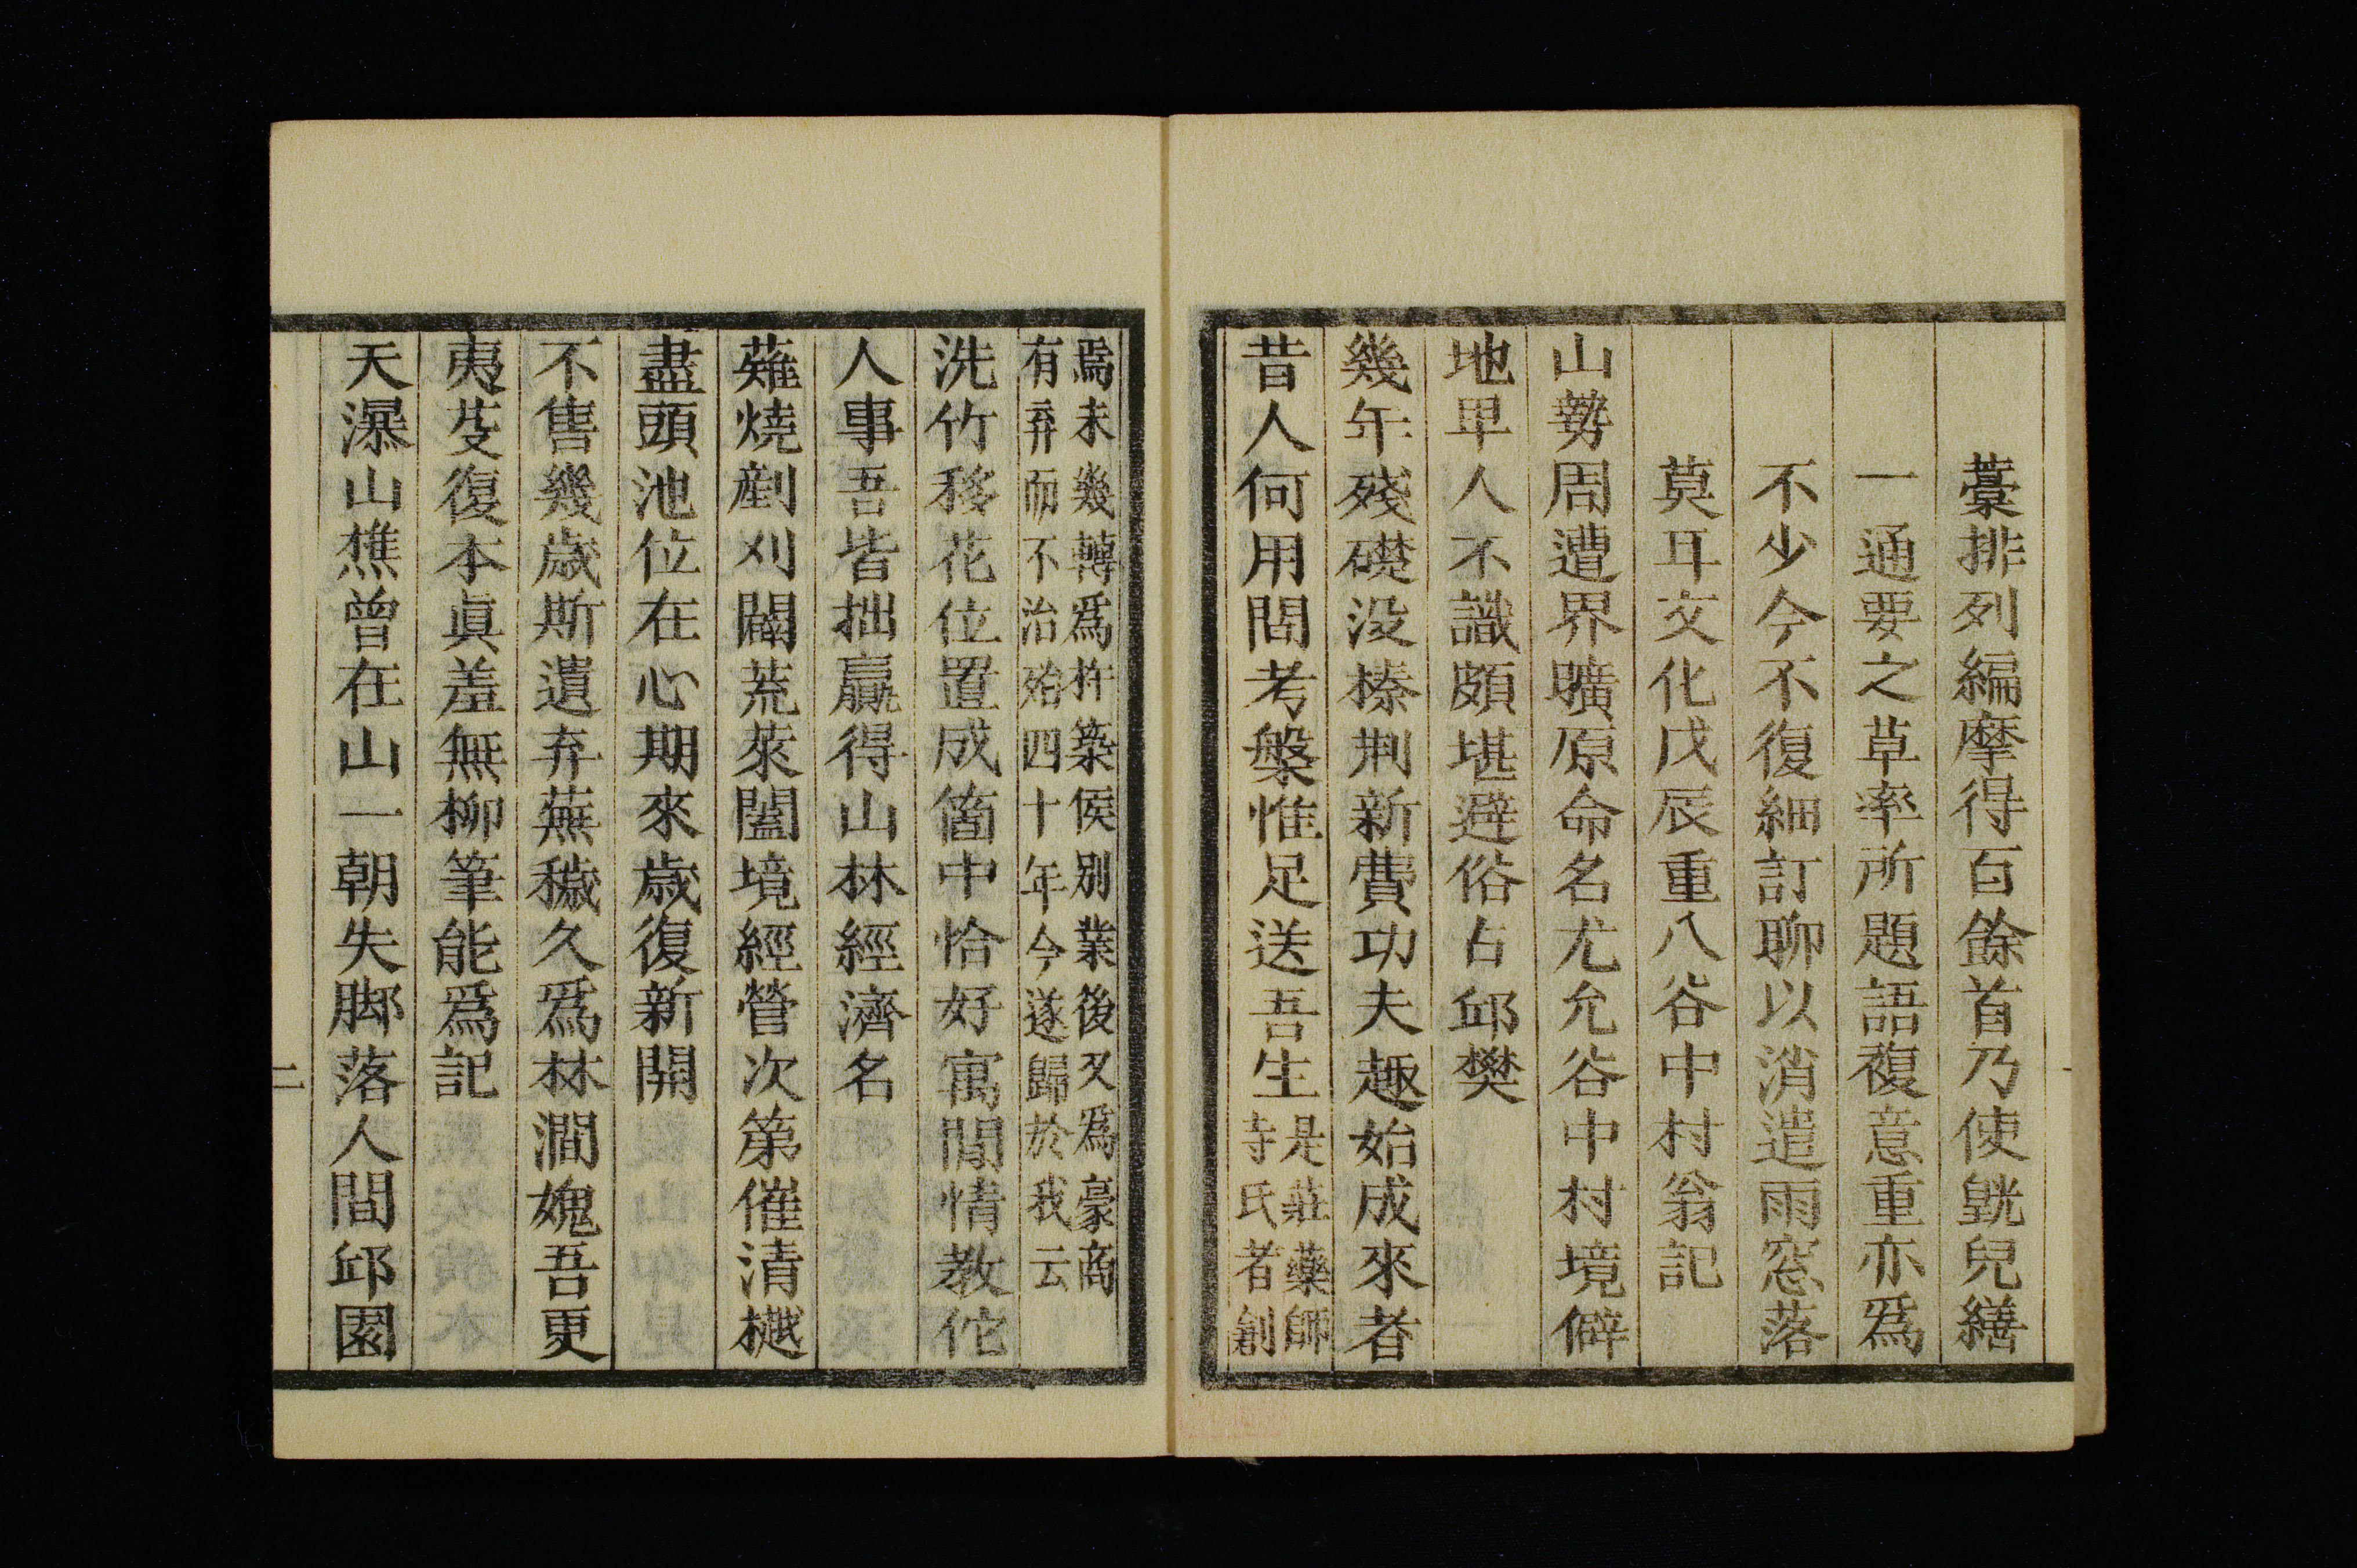 藁排列編摩得百餘首乃使皝兒繕
一通要之草率所題語複意重亦爲
不少今不復細訂聊以消遣雨窓落
莫耳文化戊辰重八谷中村翁記
山勢周遭界曠原命名尤允谷中村境僻
地卑人不識頗堪避俗占邱樊
幾年殘礎没榛荆新費功夫趣始成來者
昔人何用問考槃惟足送吾生
是莊藥師
寺氏者創
焉未幾轉爲杵築侯別業後又爲豪商
有弃而不治殆四十年今遂歸於我云
洗竹移花位置成箇中恰好寓閒情教佗
人事吾皆拙贏得山林經濟名
薙燒剷刈闢荒萊闔境經營次第催清樾
盡頭池位在心期來歳復新開
不售幾歳斯遺弃蕪穢久爲林澗媿吾更
夷芟復本眞羞無柳筆能爲記
天瀑山樵曾在山一朝失脚落人間邱園
二